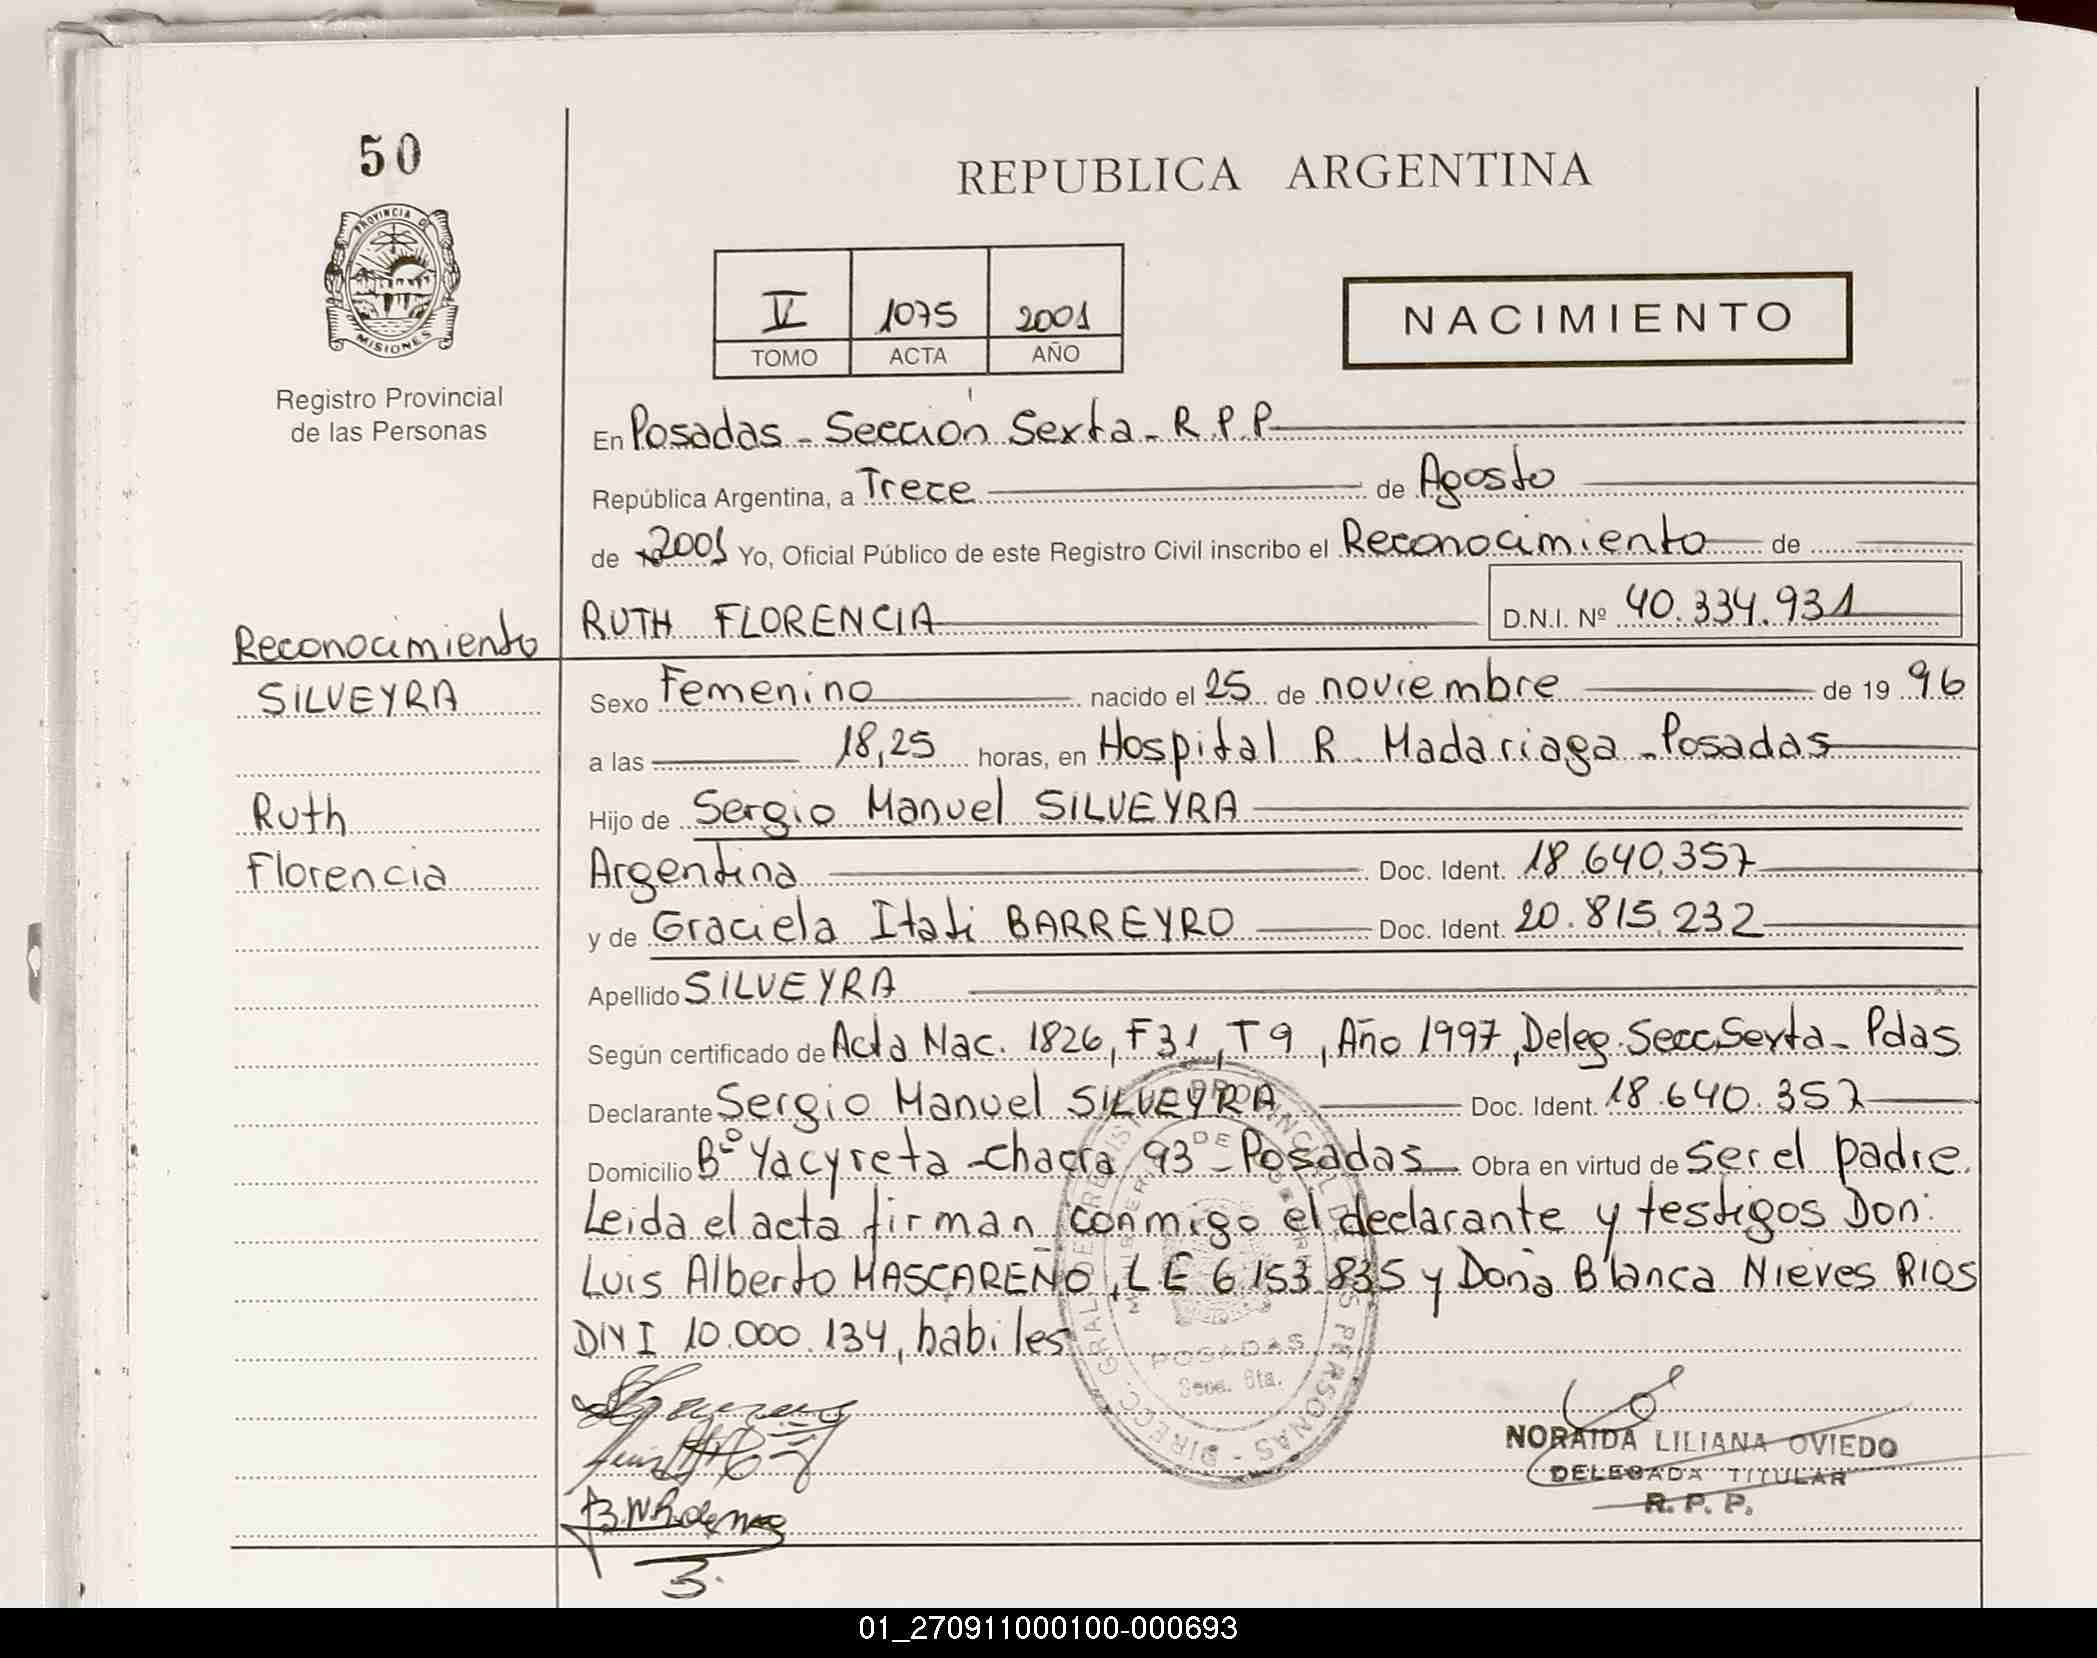 50
REPUBLICA ARGENTINA
PROVINCIA DE
MISIONES
Registro Provincial
de las Personas
V 1075 2001
TOMO ACTA AÑO
NACIMIENTO
En Posadas - Sección Sexta - R.P.P
República Argentina, a Trece de Agosto
de 2001 Yo, Oficial Público de este Registro Civil inscribo el Reconocimiento de
RUTH FLORENCIA D.N.I. Nº 40.334.931
Reconocimiento
SILVEYRA
Ruth
Florencia
Sexo Femenino nacido el 25 de noviembre de 19 96
a las 18,25 horas, en Hospital R. Madariaga - Posadas
Hijo de Sergio Manuel SILVEYRA
Argentina Doc. Ident. 18.640.357
y de Graciela Itati BARREYRO Doc. Ident. 20.815.232
Apellido SILVEYRA
Según certificado de Acta Nac. 1826, F 31, T 9, Año 1997, Deleg. Secc. Sexta - Pdas
Declarante Sergio Manuel SILVEYRA Doc. Ident. 18.640.357
Domicilio Bº Yacyreta - chacra 93 - Posadas Obra en virtud de ser el padre.
Leida el acta firman conmigo el declarante y testigos Don:
Luis Alberto MASCAREÑO, LE 6.153.835 y Doña Blanca Nieves RIOS
DNI 10.000.134, habiles
POSADAS
Secc. 6ta.
NORAIDA LILIANA OVIEDO
DELEGADA TITULAR
R. P. P.
01_270911000100-000693